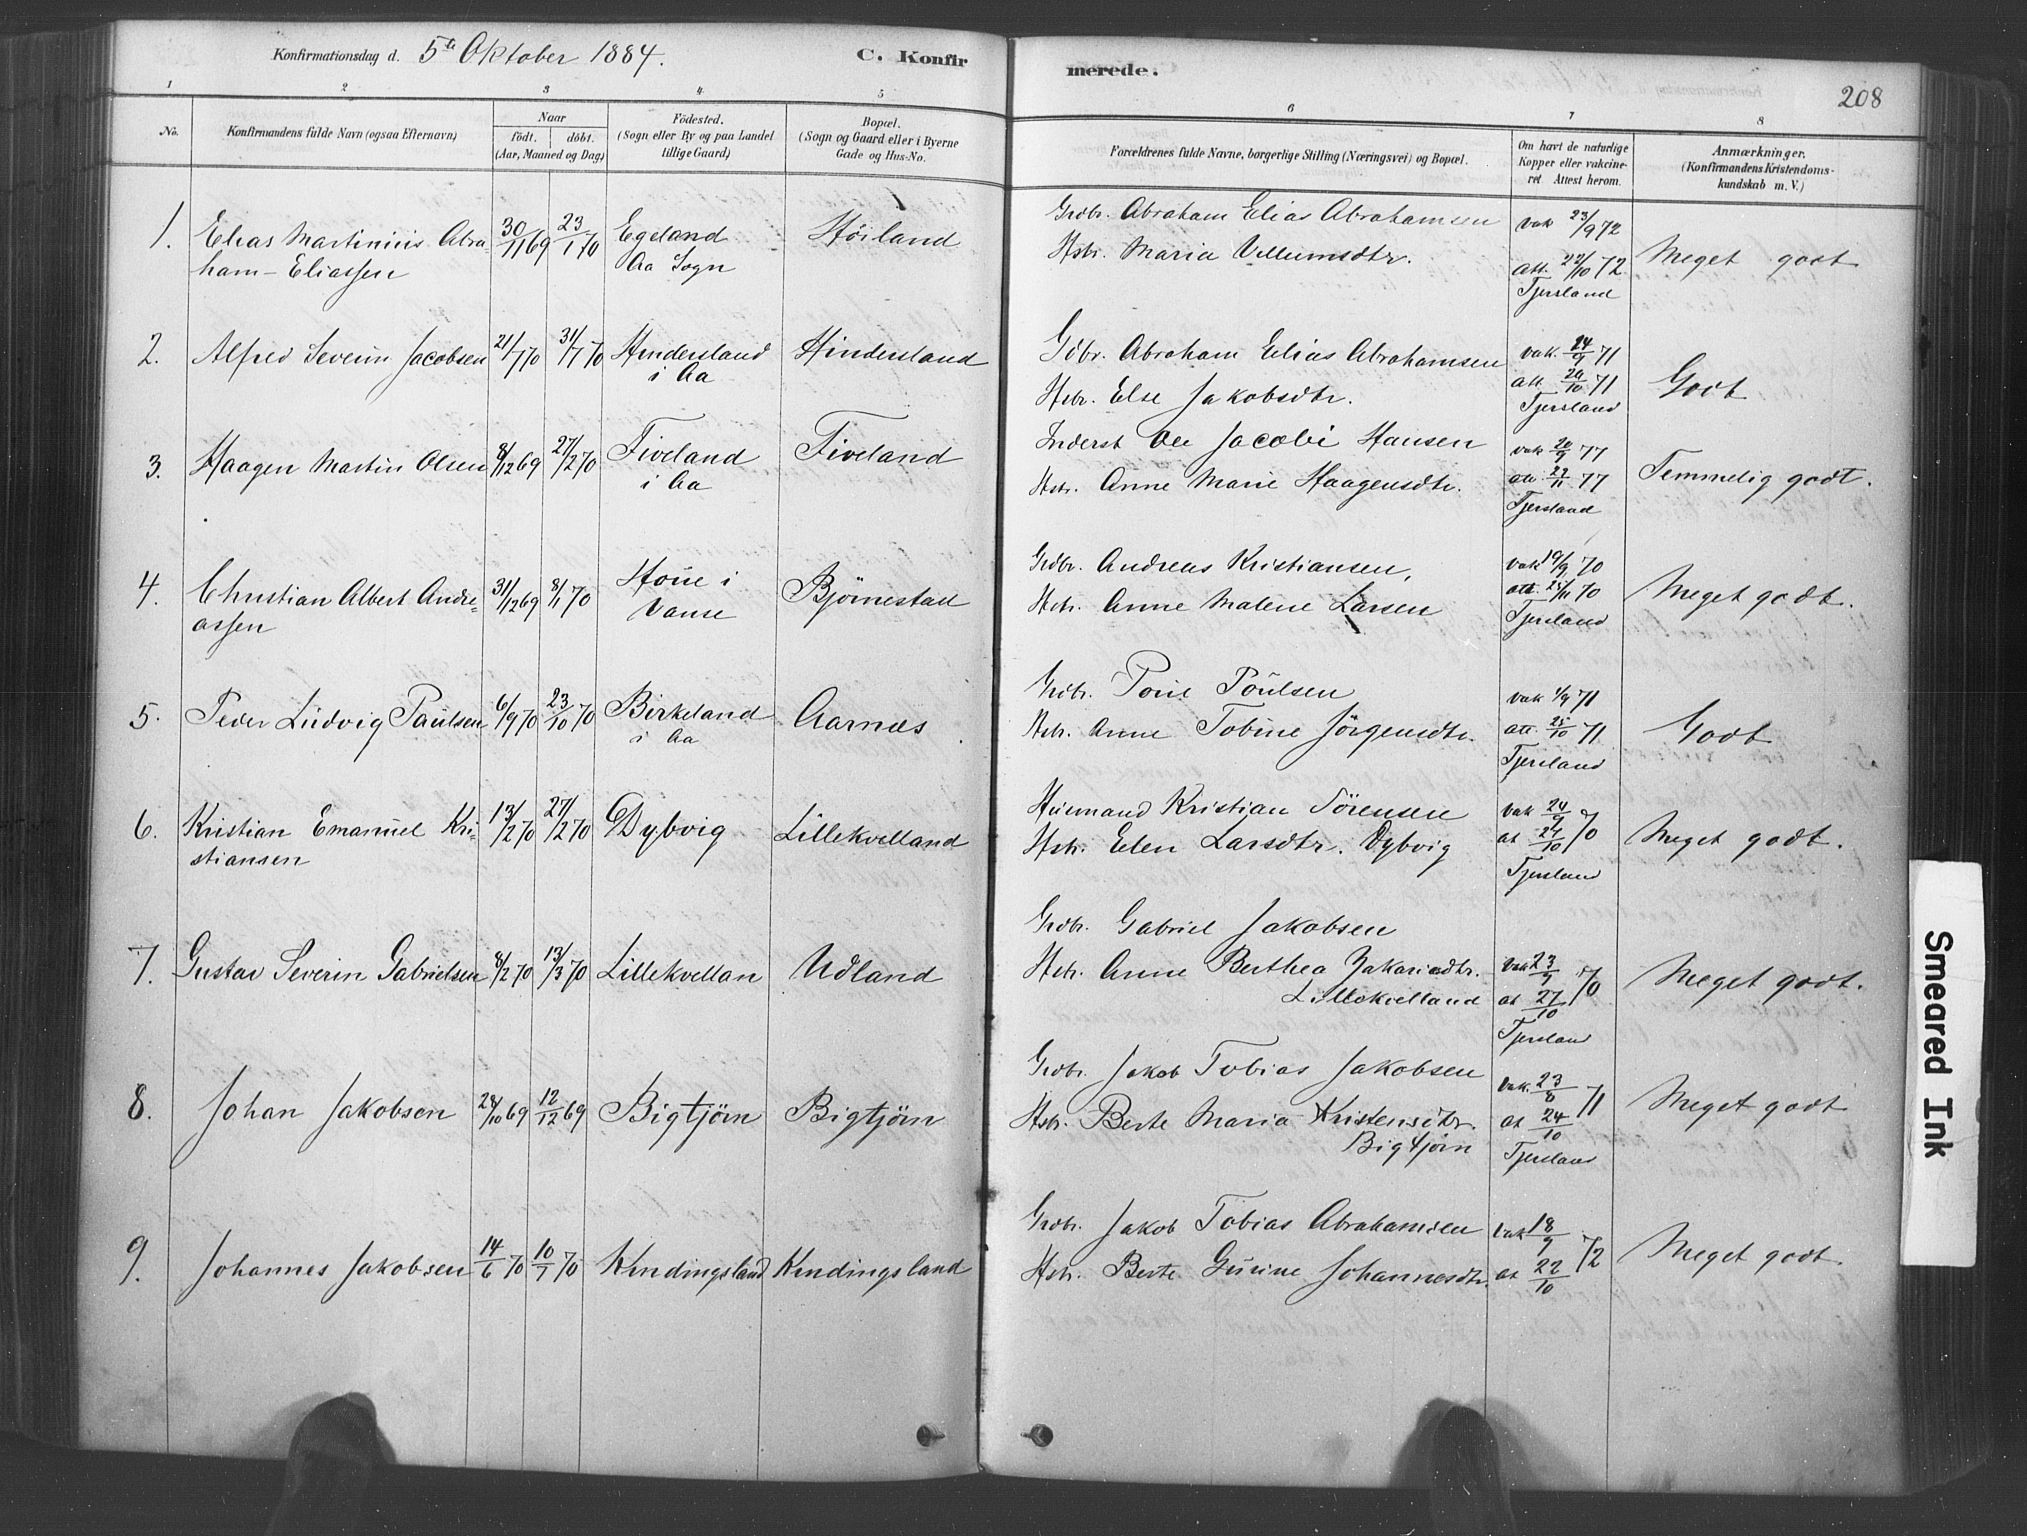 Konfirmationsdag d. 5te Oktober 1884.
C. Konfir
merede.
208
1 2 3 4 5 6 7 8
No.
Konfirmandens fulde Navn (ogsaa Efternavn)
Naar
födt. döbt.
(Aar, Maaned og Dag)
Födested.
(Sogn eller By og paa Landet
tillige Gaard)
Bopæl.
(Sogn og Gaard eller i Byerne
Gade og Hus-No.
Forældrenes fulde Navne, borgerlige Stilling (Næringsvei) og Bopæl.
Om havt de naturlige
Kopper eller vakcine-
ret Attest herom.
Anmærkninger.
(Konfirmandens Kristendoms-
kundskab m. V.)
1. Elias Martinius Abra- 30/11 69 23/1 70 Egeland Höiland
ham-Eliassen Aa Sogn
Grdbr. Abraham Elias Abrahamsen vak 23/9 72
Hstr. Maria Villumsdtr. att. 22/10 72 Meget godt
Tjersland
2. Alfred Severin Jacobsen 21/7 70 31/7 70 Hindersland Hindersland
i Aa
Gdbr. Abraham Elias Abrahamsen vak. 24/9 71
Hstr. Else Jakobsdtr. att. 20/10 71 Godt
Tjersland
3. Haagen Martin Olsen 8/12 69 27/2 70 Fiveland Fiveland
i Aa
Inderst Ole Jacobi Hansen vak 20/9 77
Hstr. Anne Marie Haagensdtr. att. 22/11 77 Temmelig godt.
Tjersland
4. Christian Albert Andre- 31/12 69 8/1 70 Houe i Björnestad
assen Vanse
Grdbr. Andreas Kristiansen, vak 19/9 70
Hstr. Anne Malene Larsen att. 25/11 70 Meget godt.
Tjersland
5. Peder Ludvig Paulsen 6/9 70 23/10 70 Birkeland Aarnæs
i Aa
Grdbr. Poul Poulsen vak 1/9 71
Hstr. Anne Tobine Jörgensdtr. att. 25/10 71 Godt
Tjersland
6. Kristian Emanuel Kri- 13/2 70 27/2 70 Dybvig Lillekvelland
stiansen
Husmand Kristian Sörensen vak 24/9
Hstr. Elen Larsdtr. Dybvig at 24/10 70 Meget godt.
Tjersland
7. Gustav Severin Gabrielsen 8/2 70 13/3 70 Lillekvellan Udland
Grdbr. Gabriel Jakobsen
Hstr. Anne Berthea Zakariasdtr. vak 23/9
Lillekvelland at 27/10 70 Meget godt.
Tjersland
8. Johan Jakobsen 28/10 69 12/12 69 Bigtjörn Bigtjörn
Grdbr. Jakob Tobias Jakobsen vak. 23/8
Hstr. Berte Maria Kristensdtr. at 24/10 71 Meget godt
Bigtjörn Tjersland
9. Johannes Jakobsen 14/6 70 10/7 70 Kindingsland Kindingsland
Grdbr. Jakob Tobias Abrahamsen vak 18/9
Hstr. Berte Gurine Johannesdtr. at 22/10 72 Meget godt.
Smeared Ink